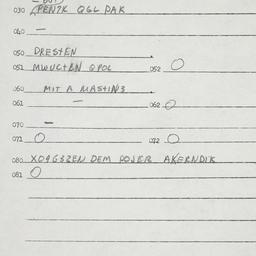 030 PENZK QGL DAK
040 —
050 DRESTEN
051 MWUCTBN QPOL 052 O
060 MIT A MASTINS
061 — 062 O
070 —
071 O 072 O
080 XO4GSZEN DEM POJER AKERNDIK
081 O